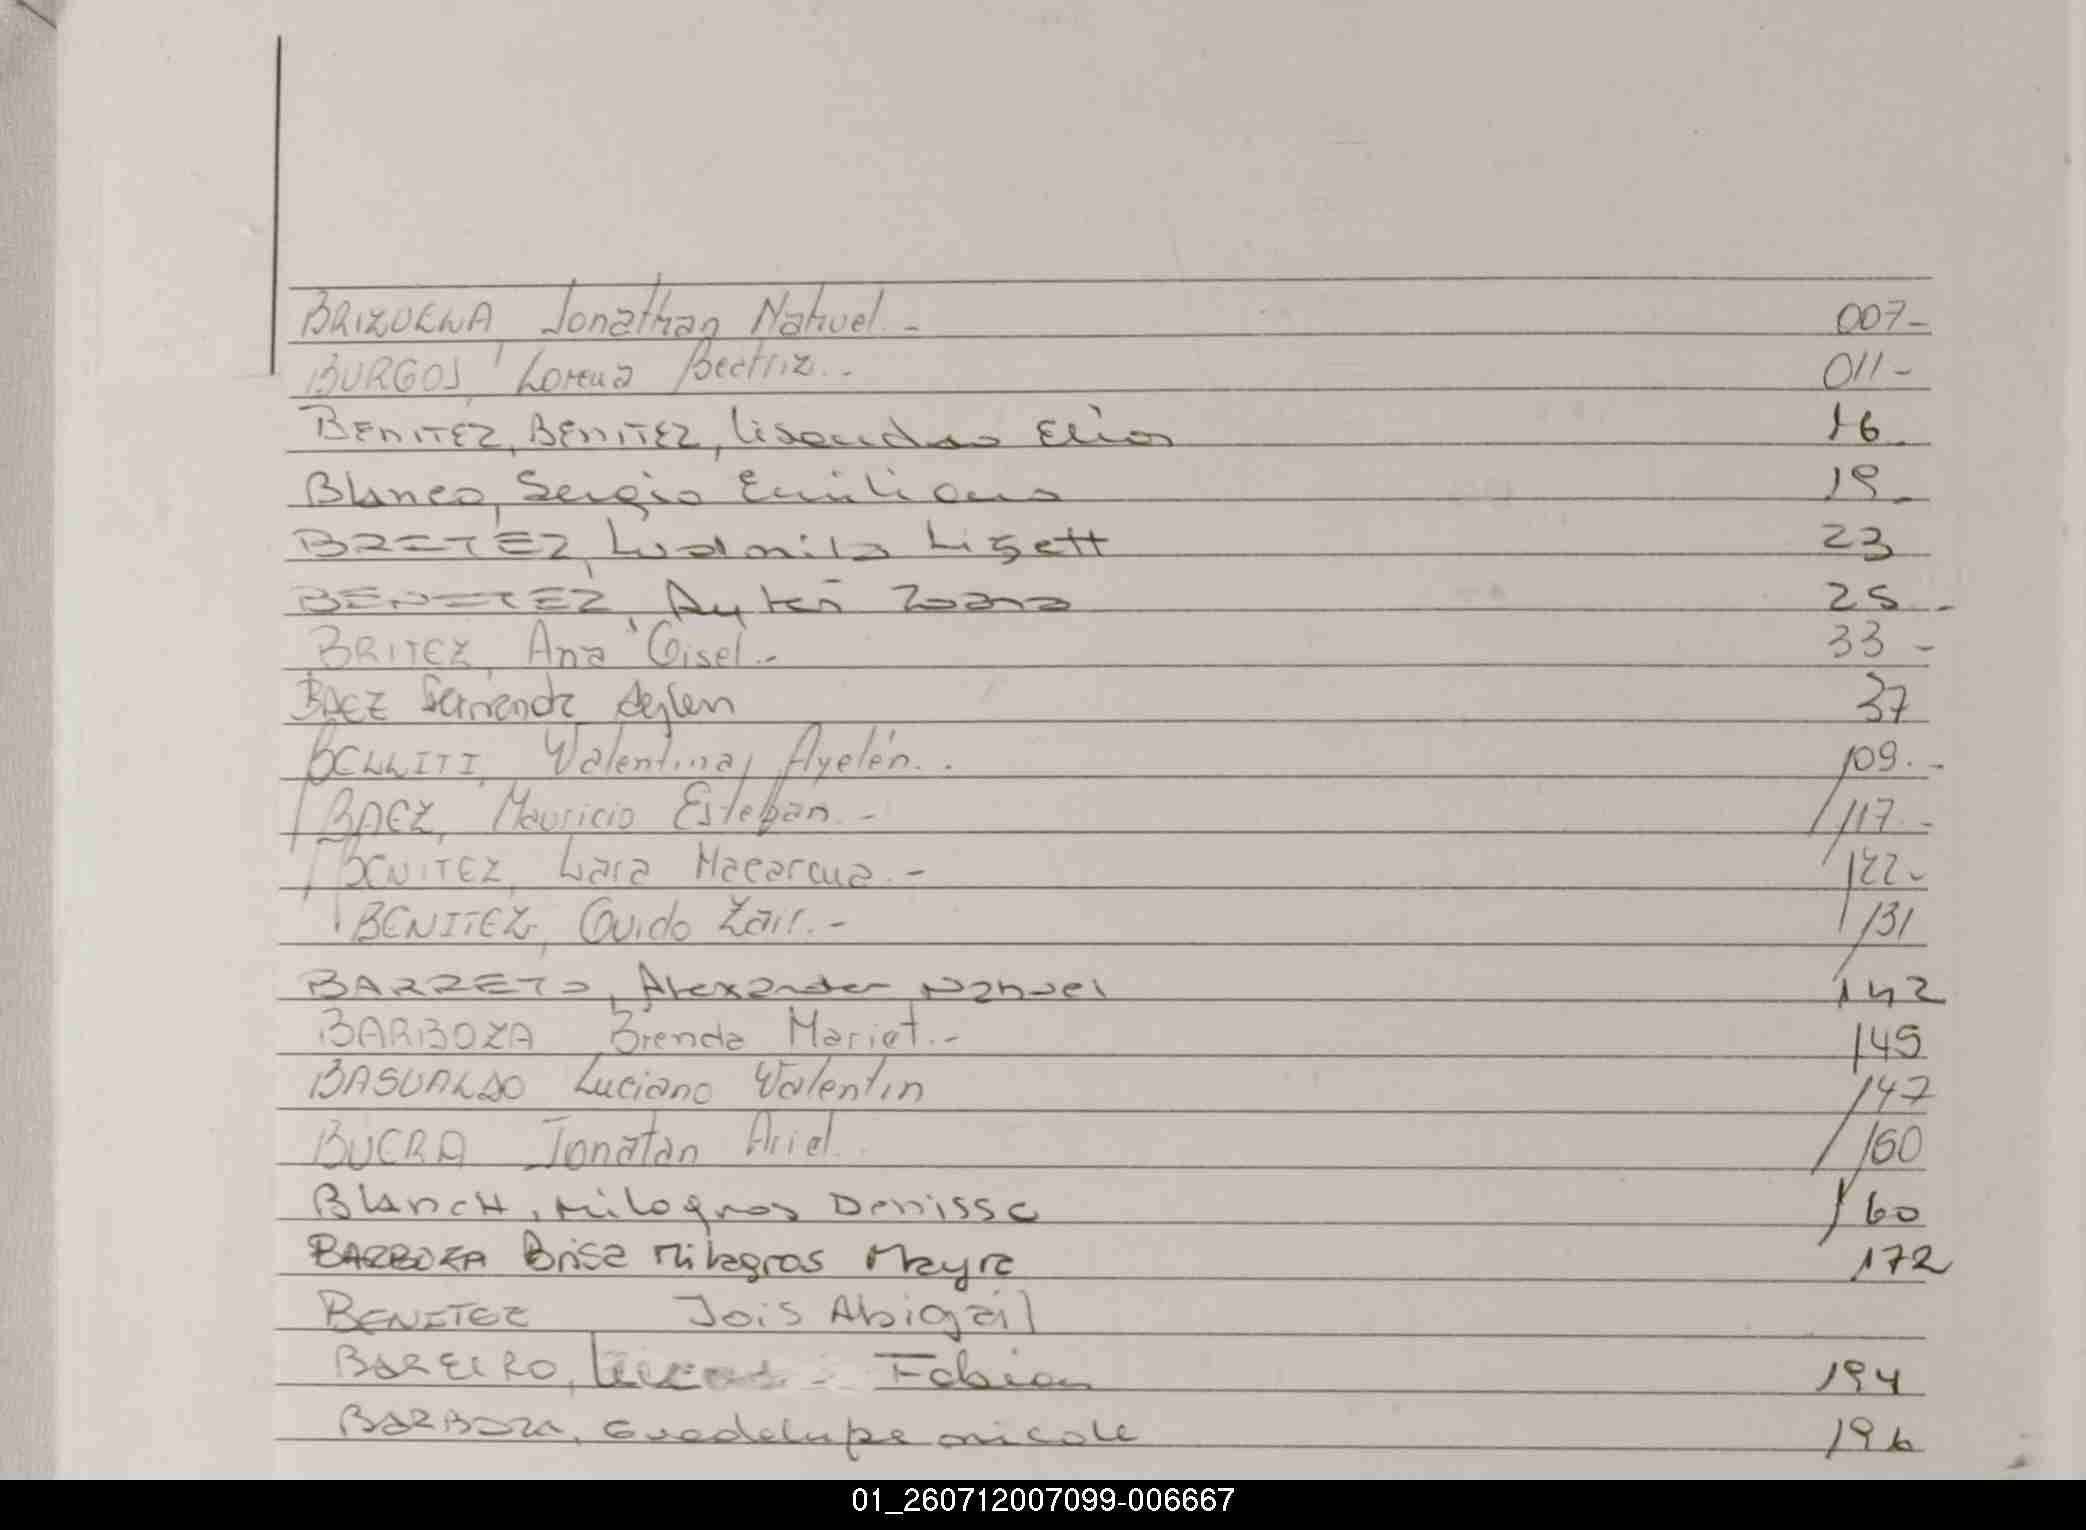 BRIZUELA, Jonathan Nahuel.- 007-
BURGOS, Lorena Beatriz.- 011-
BENITEZ, BENITEZ, Lisandro Elias 16-
Blanco, Sergio Emiliano 19-
BRITEZ, Ludmila Lizett 23
BENITEZ, Zoana 25-
BRITEZ, Ana Gisel.- 33-
BAEZ Fernanda Aylen 37
BELLITI, Valentina, Ayelén.- 109.-
BAEZ, Mauricio Esteban.- 117-
BENITEZ, Lara Macarena.- 122-
BENITEZ, Guido Zair.- 131
BARRETO, Alexander Nahuel 142
BARBOZA Brenda Mariet.- 145
BASUALDO Luciano Valentin 147
BUERA Jonatan Ariel. 150
Blanch, Milagros Denisse 160
BARBOZA Brisa Milagros Mayra 172
BENITEZ Jois Abigail
BAREIRO, Lucas Fabian 194
BARBOZA, Guadelupe nicole 196
01_260712007099-006667